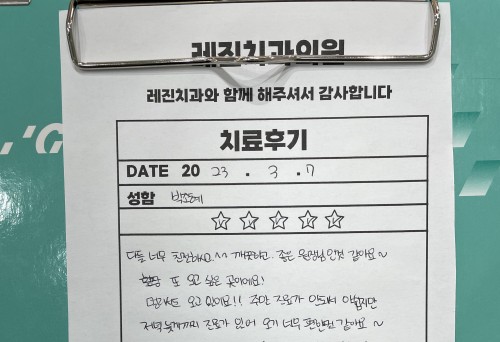 레진치과의원
레진치과와 함께 해주셔서 감사합니다
치료후기
DATE 20 23 . 3 . 7
성함
다들 너무 친절하시고^^ 깨끗하고. 좋은 원장님인것 같아요~
또 오고 싶은 곳이에요!
오고 있어요!! 주말 진료가 안되서 아쉽지만
저녁 늦게까지 진료가 있어 오기 너무 편한것 같아요~